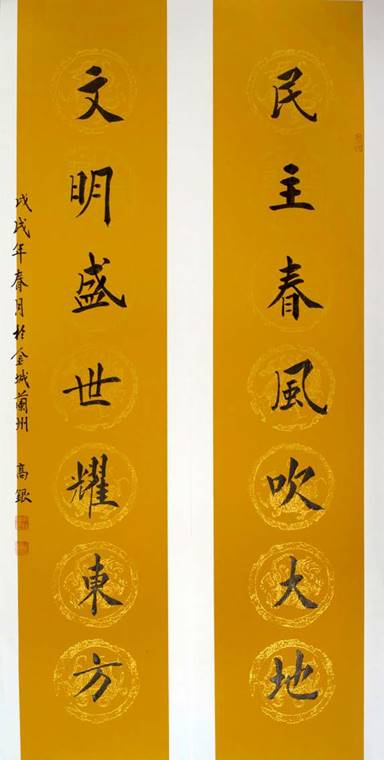 民主春風吹大地
文明盛世耀東方
戊戌年春月於金城蘭州 高銀